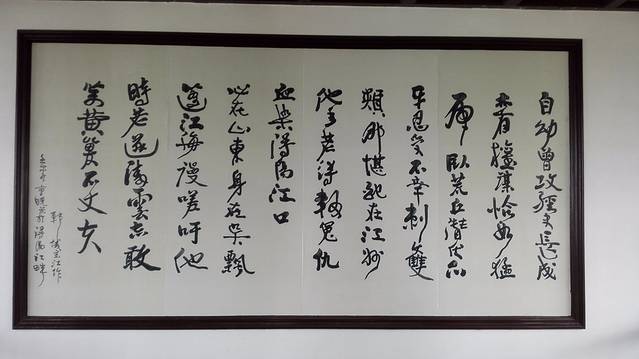 自幼曾攻經史長成
亦有權謀恰如猛
虎臥荒丘潛伏爪
牙忍受不幸刺雙
頰那堪配在江州
他年若得報冤仇
血染潯陽江口
心在山東身在吳飄
蓬江海謾嗟吁他
時若遂凌雲志敢
笑黃巢不丈夫
宋江作
於潯陽江畔